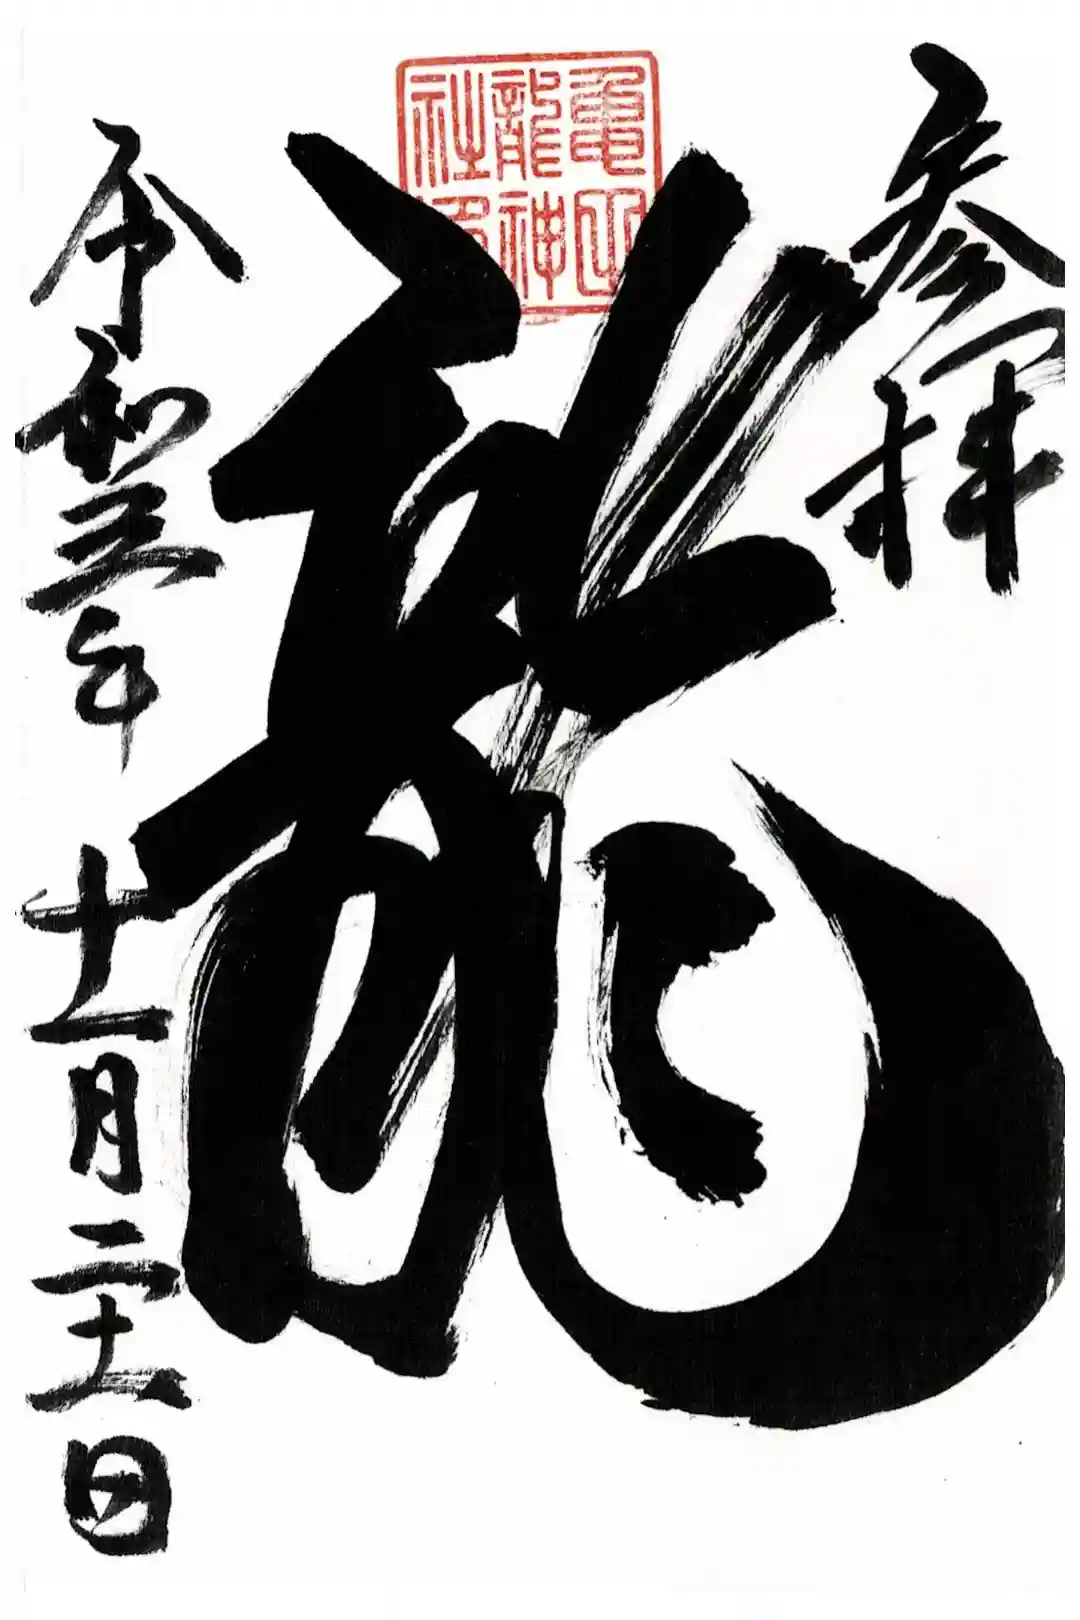 参拝
龍
龜
龍神
社
令和三年十一月二十一日